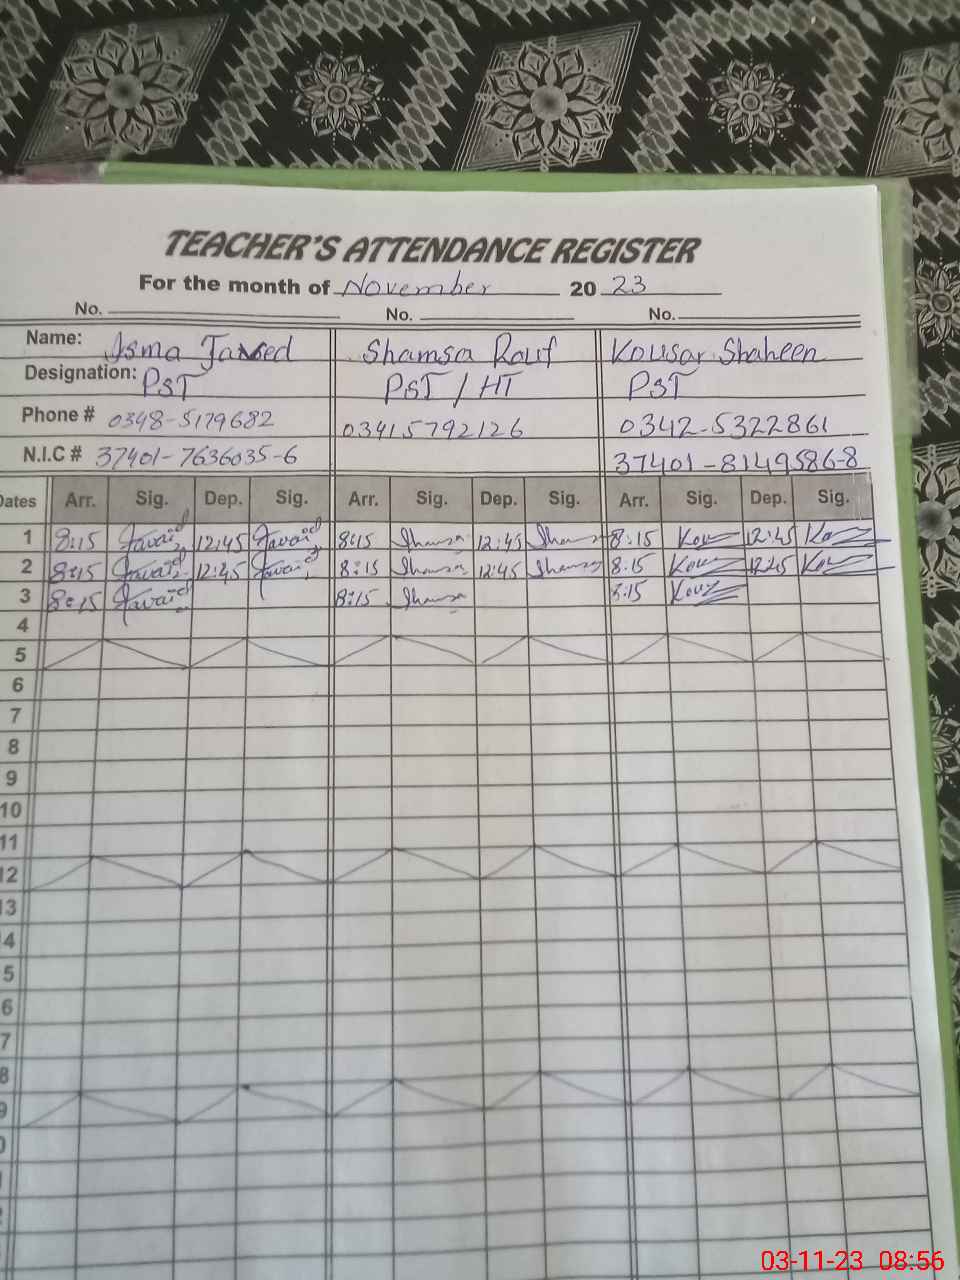 TEACHER'S ATTENDANCE REGISTER
For the month of November 20 23
No. No. No.
Name: Isma Javed Shamsa Rouf Kousar Shaheen
Designation: PST PST / HT PST
Phone # 0348-5179682 03415792126 0342-5322861
N.I.C # 37401-7636035-6 37401-8149586-8
Dates Arr. Sig. Dep. Sig. Arr. Sig. Dep. Sig. Arr. Sig. Dep. Sig.
1 8:15 Javaid 12:45 Javaid 8:15 Shamsa 12:45 Shamsa 8:15 Kou 12:45 Ko
2 8:15 Javaid 12:45 Javaid 8:15 Shamsa 12:45 Shamsa 8:15 Kou 12:45 Kou
3 8:15 Javaid 8:15 Shamsa 8:15 Kou
4
5
6
7
8
9
10
11
12
13
4
5
6
7
8
9
0
03-11-23 08:56